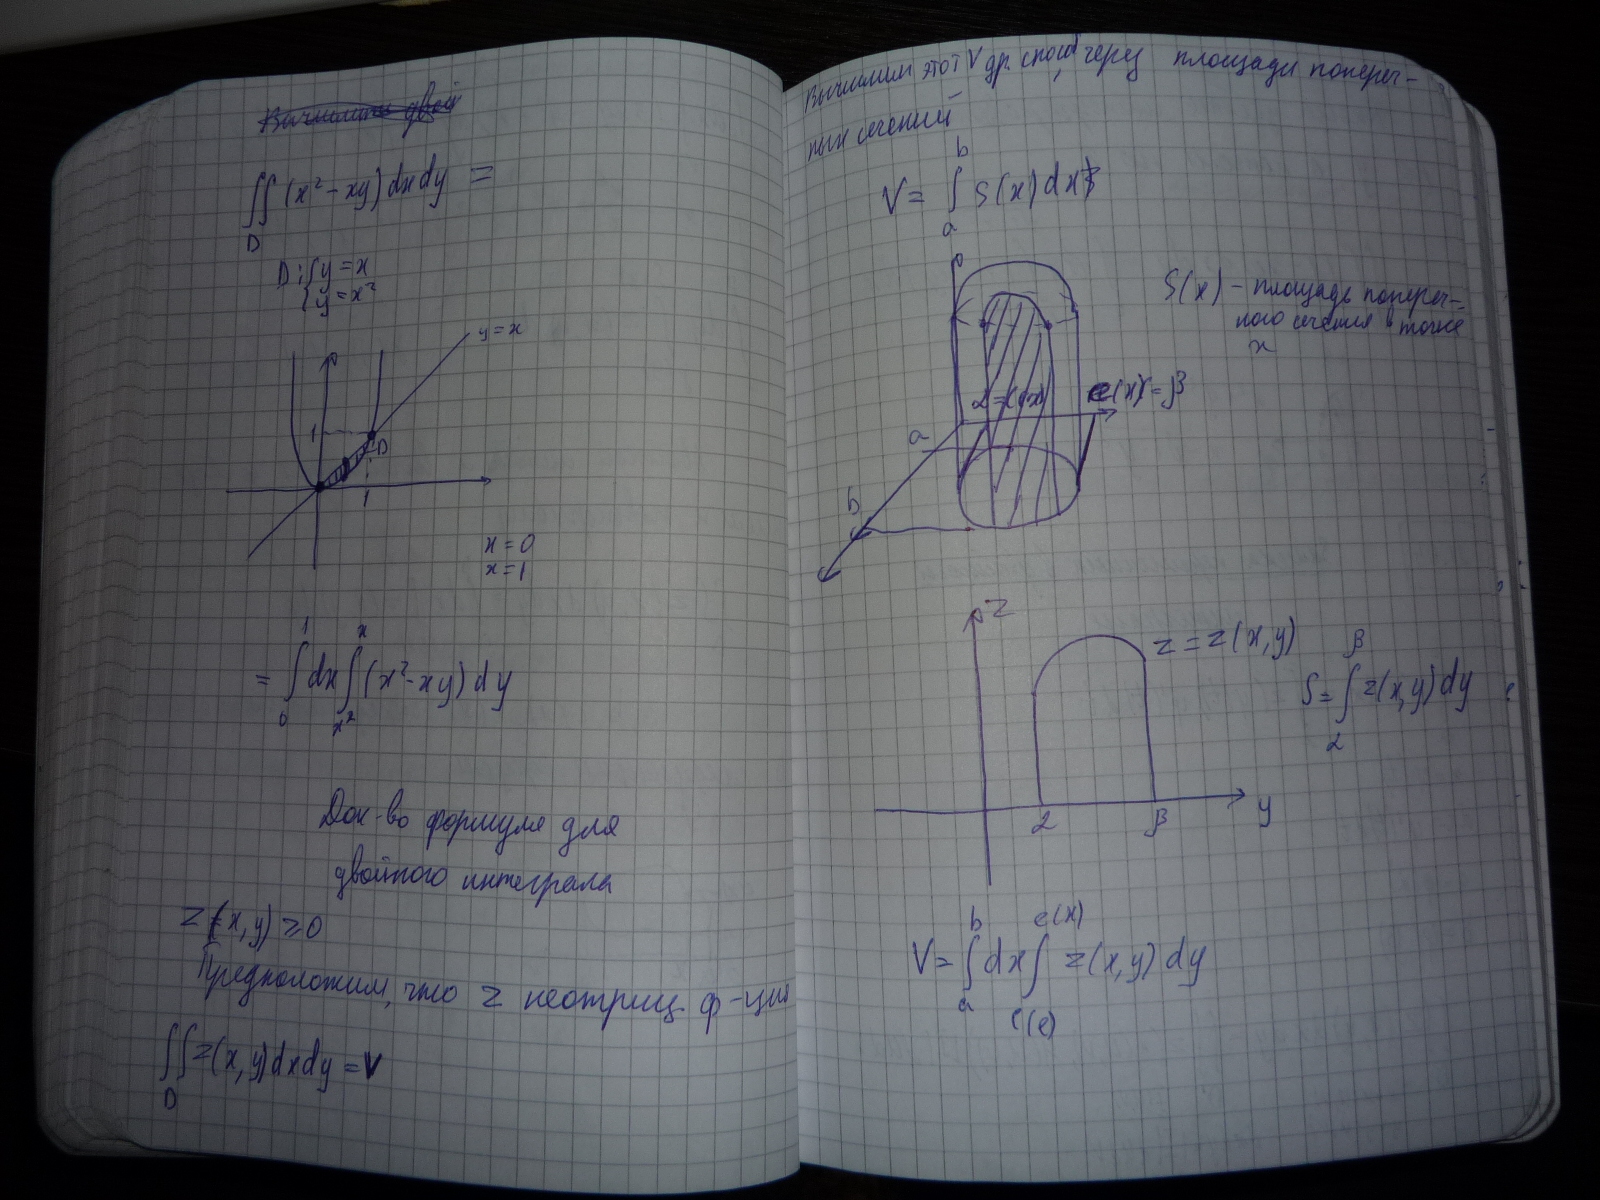 ∬ (x² - xy) dx dy =
D
D: { y = x
{ y = x²
y = x
1
D
1
x = 0
x = 1
= ∫₀¹ dx ∫ₓ²ˣ (x² - xy) dy
Док-во формулы для
двойного интеграла
z(x, y) ≥ 0
Предположим, что z неотриц. ф-ция
∬ z(x, y) dx dy = V
D
Вычислим этот V др. способ, через площади попереч-
ных сечений
V = ∫ₐᵇ S(x) dx
S(x) - площадь попереч-
ного сечения в точке
x
a
(x) = β
b
z
z = z(x, y)
S = ∫ z(x, y) dy
β
α
α
β
y
V = ∫ₐᵇ dx ∫ z(x, y) dy
e(x)